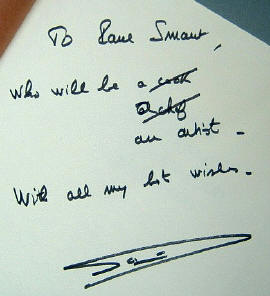 To Rave Smart,
who will be a cook
a chef
an artist -
With all my best wishes -